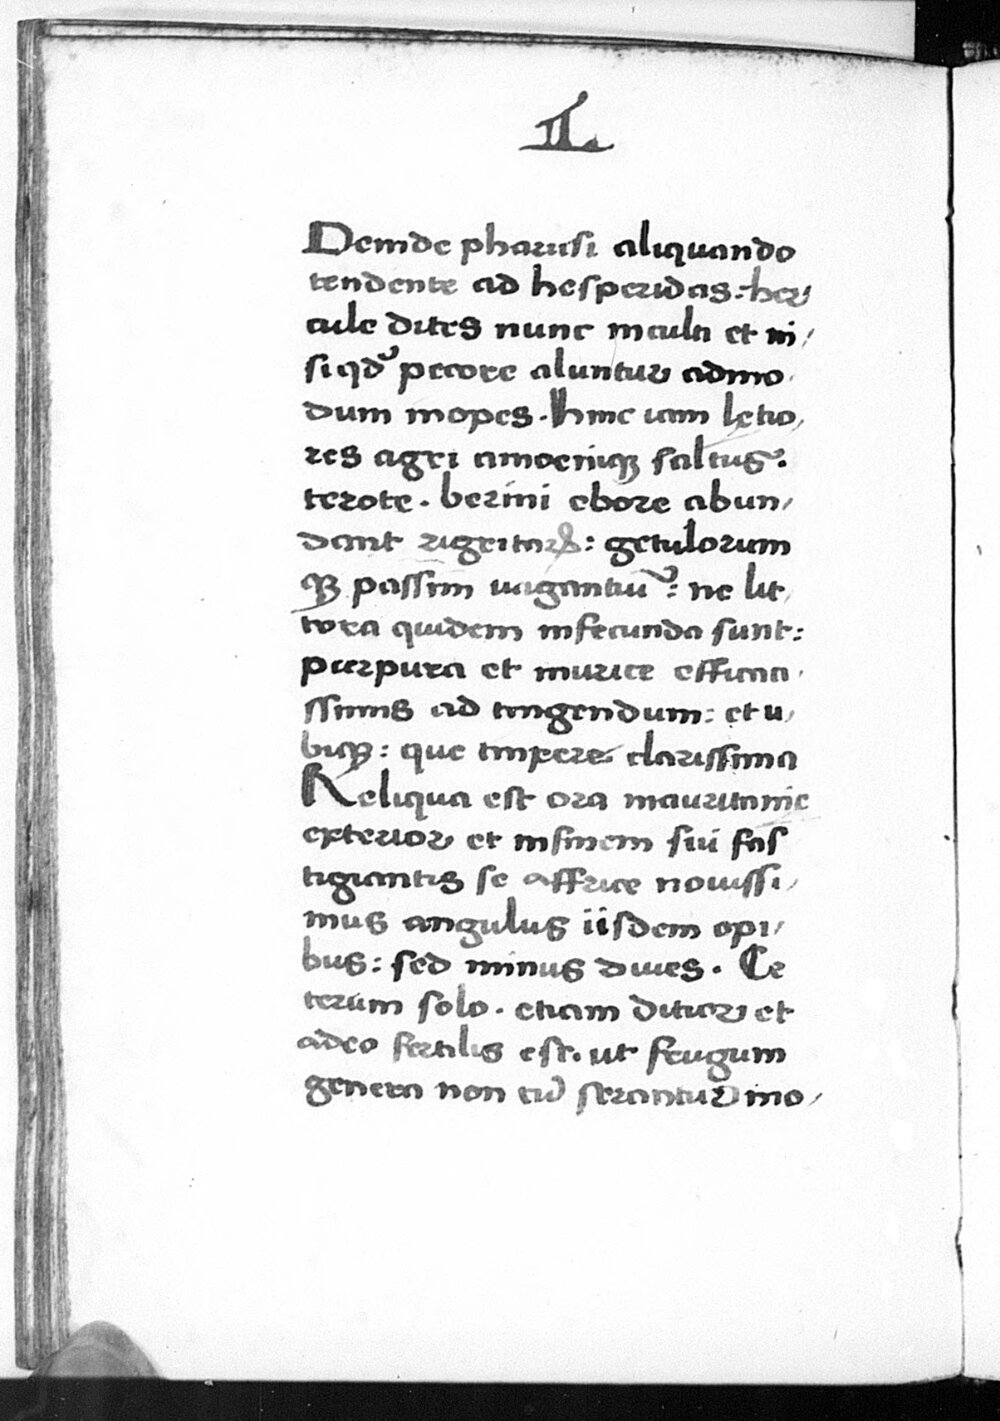 II.
Deinde pharusi aliquando
tendente ad hesperidas: her/
cule dites nunc inculti et ni/
si qđ pecore aluntur admo
dum inopes. hinc iam letio/
res agri amoeniqȝ saltus.
terote. berini ebore abun/
dant nigritarꝝ: getulorum
qȝ passim vagantiū: ne lit
tora quidem infecunda sunt:
purpura et murice efficaci
ssimis ad tingendum: et u/
biqȝ: que tinxere clarissima
Reliqua est ora mauritanie
exterior et infinem sui fas
tigiantis se affrice novissi/
mus angulus iisdem opi/
bus: sed minus dives. Ce
terum solo. etiam ditior et
adeo fertilis est. ut frugum
genera non cū serantur mo/